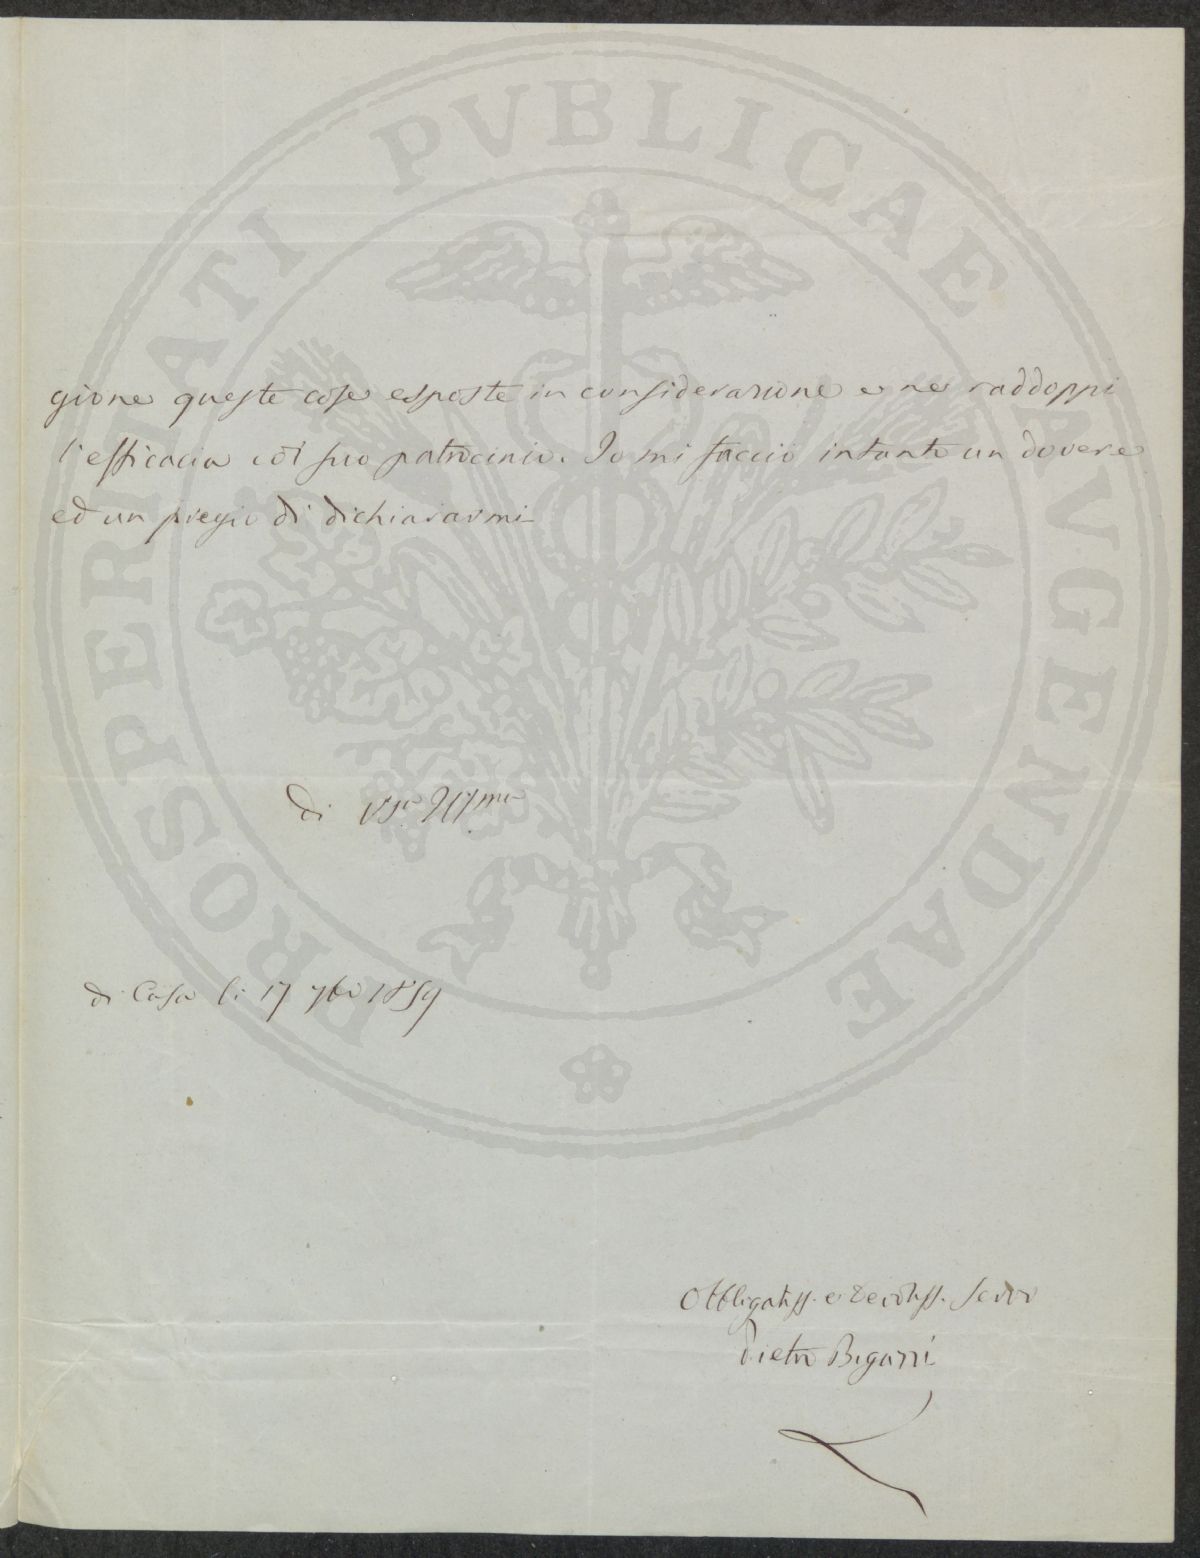 PROSPERITATI PVBLICAE AVGENDAE
gione queste cose esposte in considerazione e ne raddoppi
l'efficacia col suo patrocinio. Io mi faccio intanto un dovere
ed un pregio di dichiararmi
di VSria Illma
di Casa li 17 7bre 1859
Obbligatiss. e Devotiss. Servo
Pietro Bigazzi